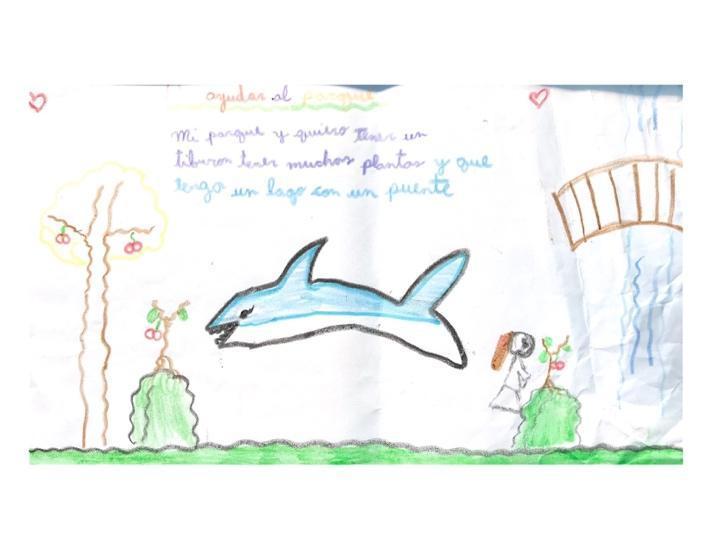 ayudar al parque
Mi parque y quiero tener un
tiburon tener muchos plantas y que
tenga un lago con un puente